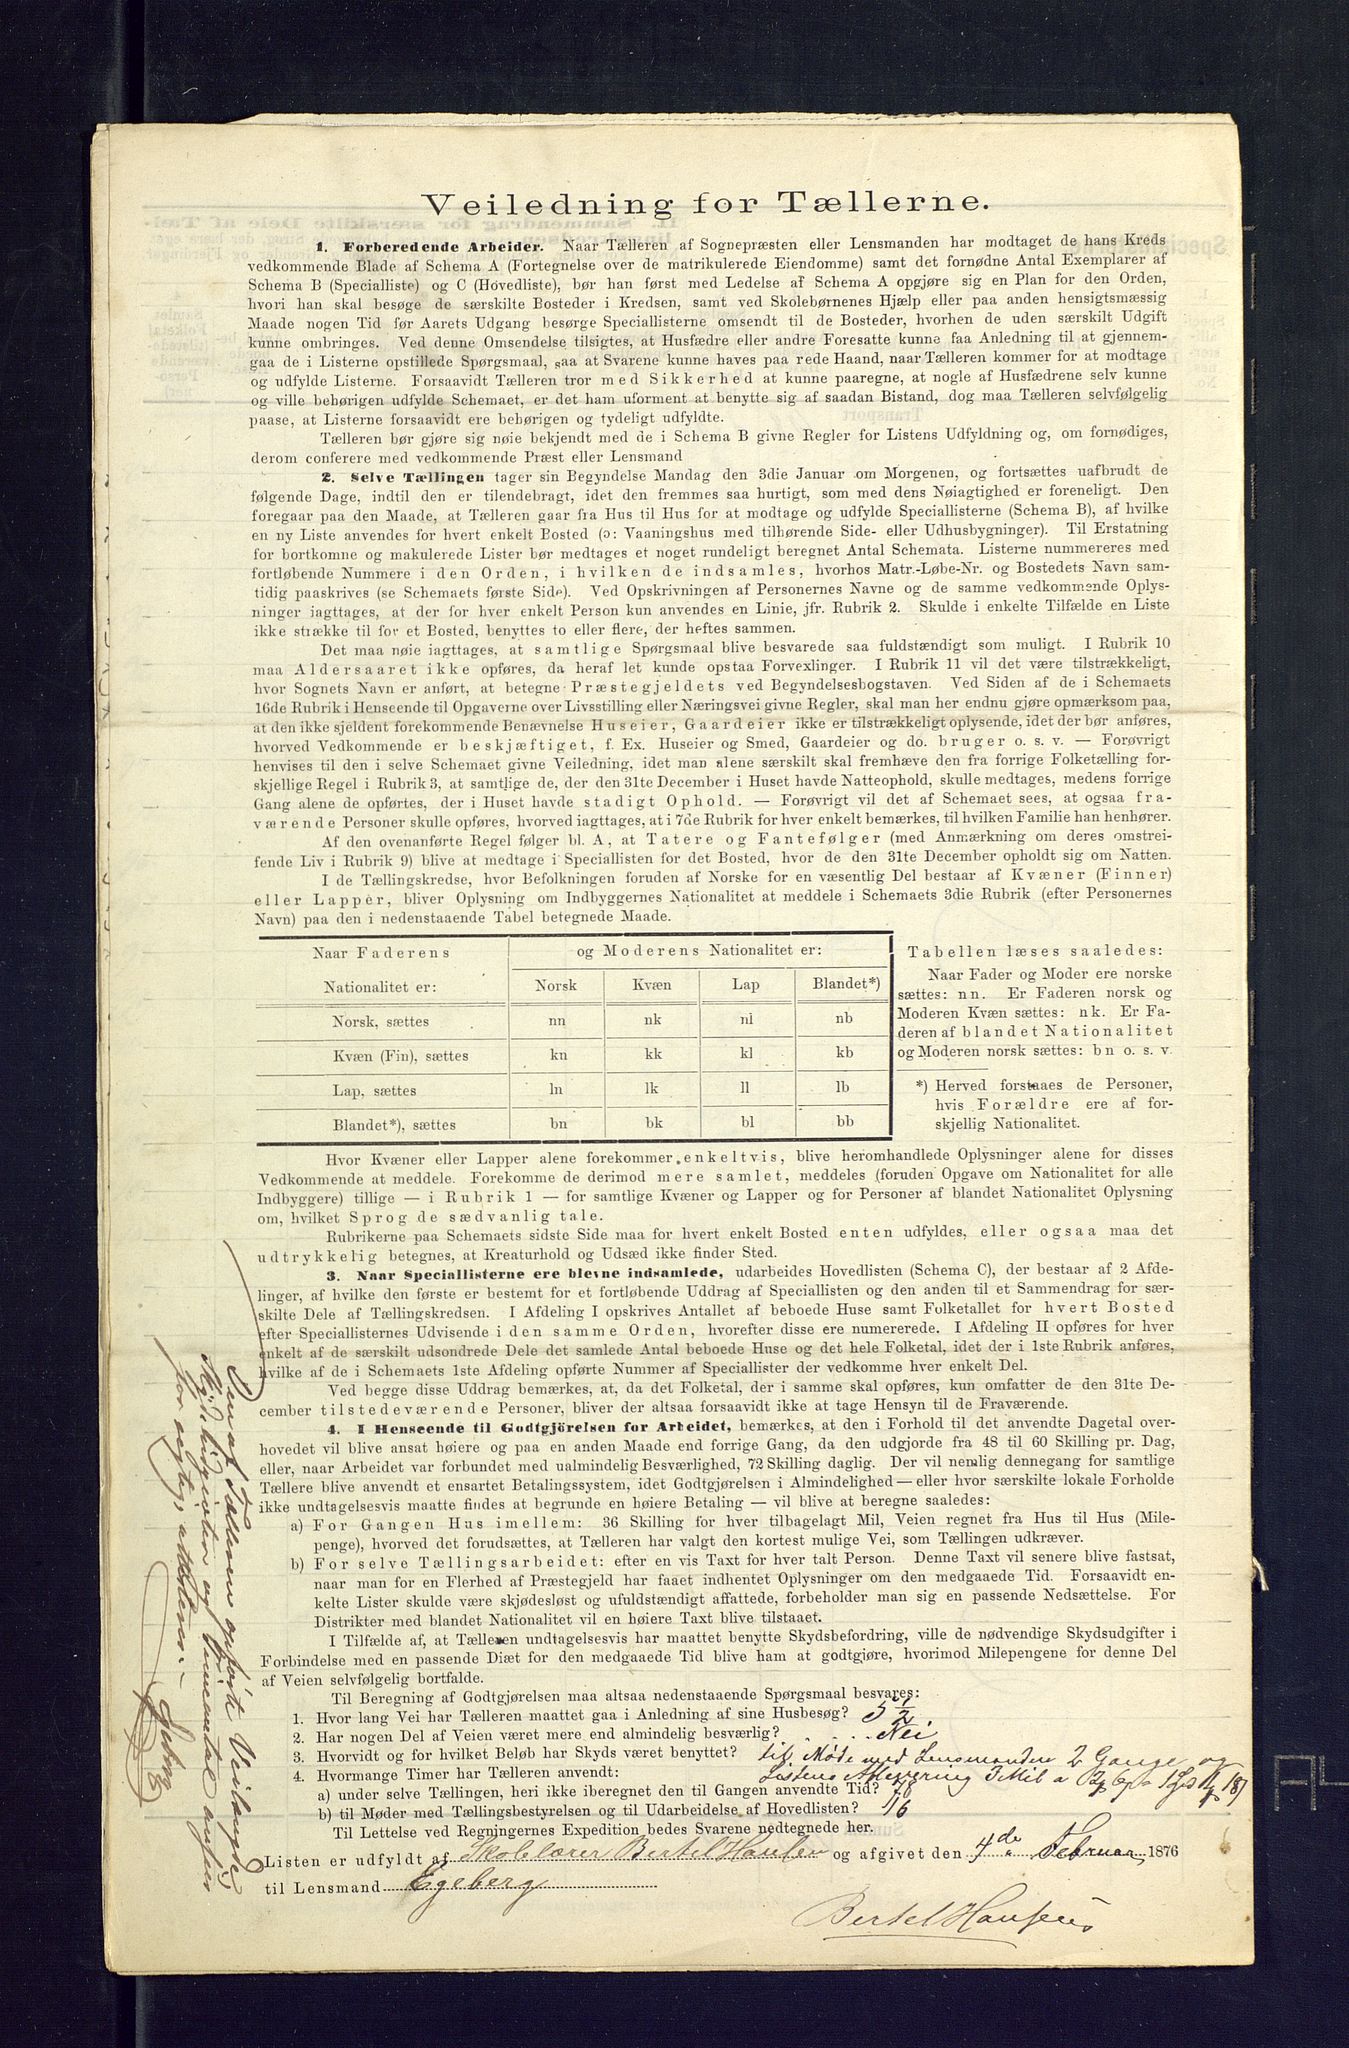 Veiledning for Tællerne.
1. Forberedende Arbeider. Naar Tælleren af Sognepræsten eller Lensmanden har modtaget de hans Kreds
vedkommende Blade af Schema A (Fortegnelse over de matrikulerede Eiendomme) samt det fornødne Antal Exemplarer af
Schema B (Specialliste) og C (Hovedliste), bør han først med Ledelse af Schema A opgjøre sig en Plan for den Orden,
hvori han skal besøge de særskilte Bosteder i Kredsen, samt ved Skolebørnenes Hjælp eller paa anden hensigtsmæssig
Maade nogen Tid før Aarets Udgang besørge Speciallisterne omsendt til de Bosteder, hvorhen de uden særskilt Udgift
kunne ombringes. Ved denne Omsendelse tilsigtes, at Husfædre eller andre Foresatte kunne faa Anledning til at gjennem-
gaa de i Listerne opstillede Spørgsmaal, saa at Svarene kunne haves paa rede Haand, naar Tælleren kommer for at modtage
og udfylde Listerne. Forsaavidt Tælleren tror med Sikkerhed at kunne paaregne, at nogle af Husfædrene selv kunne
og ville behørigen udfylde Schemaet, er det ham uforment at benytte sig af saadan Bistand, dog maa Tælleren selvfølgelig
paase, at Listerne forsaavidt ere behørigen og tydeligt udfyldte.
Tælleren bør gjøre sig nøie bekjendt med de i Schema B givne Regler for Listens Udfyldning og, om fornødiges,
derom conferere med vedkommende Præst eller Lensmand
2. Selve Tællingen tager sin Begyndelse Mandag den 3die Januar om Morgenen, og fortsættes uafbrudt de
følgende Dage, indtil den er tilendebragt, idet den fremmes saa hurtigt, som med dens Nøiagtighed er foreneligt. Den
foregaar paa den Maade, at Tælleren gaar fra Hus til Hus for at modtage og udfylde Speciallisterne (Schema B), af hvilke
en ny Liste anvendes for hvert enkelt Bosted (ɔ: Vaaningshus med tilhørende Side- eller Udhusbygninger). Til Erstatning
for bortkomne og makulerede Lister bør medtages et noget rundeligt beregnet Antal Schemata. Listerne nummereres med
fortløbende Nummere i den Orden, i hvilken de indsamles, hvorhos Matr.-Løbe-Nr. og Bostedets Navn sam-
tidig paaskrives (se Schemaets første Side). Ved Opskrivningen af Personernes Navne og de samme vedkommende Oplys-
ninger iagttages, at der for hver enkelt Person kun anvendes en Linie, jfr. Rubrik 2. Skulde i enkelte Tilfælde en Liste
ikke strække til for et Bosted, benyttes to eller flere, der heftes sammen.
Det maa nøie iagttages, at samtlige Spørgsmaal blive besvarede saa fuldstændigt som muligt. I Rubrik 10
maa Aldersaaret ikke opføres, da heraf let kunde opstaa Forvexlinger. I Rubrik 11 vil det være tilstrækkeligt,
hvor Sognets Navn er anført, at betegne Præstegjeldets ved Begyndelsesbogstaven. Ved Siden af de i Schemaets
16de Rubrik i Henseende til Opgaverne over Livsstilling eller Næringsvei givne Regler, skal man her endnu gjøre opmærksom paa,
at den ikke sjeldent forekommende Benævnelse Huseier, Gaardeier ikke er tilstrækkeligt oplysende, idet der bør anføres,
hvorved Vedkommende er beskjæftiget, f. Ex. Huseier og Smed, Gaardeier og do. bruger o. s. v. — Forøvrigt
henvises til den i selve Schemaet givne Veiledning, idet man alene særskilt skal fremhæve den fra forrige Folketælling for-
skjellige Regel i Rubrik 3, at samtlige de, der den 31te December i Huset havde Natteophold, skulle medtages, medens forrige
Gang alene de opførtes, der i Huset havde stadigt Ophold. — Forøvrigt vil det af Schemaet sees, at ogsaa fra-
værende Personer skulle opføres, hvorved iagttages, at i 7de Rubrik for hver enkelt bemærkes, til hvilken Familie han henhører.
Af den ovenanførte Regel følger bl. A, at Tatere og Fantefølger (med Anmærkning om deres omstrei-
fende Liv i Rubrik 9) blive at medtage i Speciallisten for det Bosted, hvor de den 31te December opholdt sig om Natten.
I de Tællingskredse, hvor Befolkningen foruden af Norske for en væsentlig Del bestaar af Kvæner (Finner)
eller Lapper, bliver Oplysning om Indbyggernes Nationalitet at meddele i Schemaets 3die Rubrik (efter Personernes
Navn) paa den i nedenstaaende Tabel betegnede Maade.
Naar Faderens Nationalitet er:
og Moderens Nationalitet er:
Norsk Kvæn Lap Blandet*)
Norsk, sættes nn nk nl nb
Kvæn (Fin), sættes kn kk kl kb
Lap, sættes ln lk ll lb
Blandet*), sættes bn bk bl bb
Tabellen læses saaledes:
Naar Fader og Moder ere norske
sættes: nn. Er Faderen norsk og
Moderen Kvæn sættes: nk. Er Fa-
deren af blandet Nationalitet
og Moderen norsk sættes: bn o. s. v.
*) Herved forstaaes de Personer,
hvis Forældre ere af for-
skjellig Nationalitet.
Hvor Kvæner eller Lapper alene forekommer enkeltvis, blive heromhandlede Oplysninger alene for disses
Vedkommende at meddele. Forekomme de derimod mere samlet, meddeles (foruden Opgave om Nationalitet for alle
Indbyggere) tillige — i Rubrik 1 — for samtlige Kvæner og Lapper og for Personer af blandet Nationalitet Oplysning
om, hvilket Sprog de sædvanlig tale.
Rubrikerne paa Schemaets sidste Side maa for hvert enkelt Bosted enten udfyldes, eller ogsaa maa det
udtrykkelig betegnes, at Kreaturhold og Udsæd ikke finder Sted.
3. Naar Speciallisterne ere blevne indsamlede, udarbeides Hovedlisten (Schema C), der bestaar af 2 Afde-
linger, af hvilke den første er bestemt for et fortløbende Uddrag af Speciallisten og den anden til et Sammendrag for sær-
skilte Dele af Tællingskredsen. I Afdeling I opskrives Antallet af beboede Huse samt Folketallet for hvert Bosted
efter Speciallisternes Udvisende i den samme Orden, hvorefter disse ere numererede. I Afdeling II opføres for hver
enkelt af de særskilt udsondrede Dele det samlede Antal beboede Huse og det hele Folketal, idet der i 1ste Rubrik anføres,
hvilke af de i Schemaets 1ste Afdeling opførte Nummer af Speciallister der vedkomme hver enkelt Del.
Ved begge disse Uddrag bemærkes, at, da det Folketal, der i samme skal opføres, kun omfatter de den 31te De-
cember tilstedeværende Personer, bliver der altsaa forsaavidt ikke at tage Hensyn til de Fraværende.
4. I Henseende til Godtgjörelsen for Arbeidet, bemærkes, at den i Forhold til det anvendte Dagetal over-
hovedet vil blive ansat høiere og paa en anden Maade end forrige Gang, da den udgjorde fra 48 til 60 Skilling pr. Dag,
eller, naar Arbeidet var forbundet med ualmindelig Besværlighed, 72 Skilling daglig. Der vil nemlig dennegang for samtlige
Tællere blive anvendt et ensartet Betalingssystem, idet Godtgjørelsen i Almindelighed — eller hvor særskilte lokale Forholde
ikke undtagelsesvis maatte findes at begrunde en høiere Betaling — vil blive at beregne saaledes:
a) For Gangen Hus imellem: 36 Skilling for hver tilbagelagt Mil, Veien regnet fra Hus til Hus (Mile-
penge), hvorved det forudsættes, at Tælleren har valgt den kortest mulige Vei, som Tællingen udkræver.
b) For selve Tællingsarbeidet: efter en vis Taxt for hver talt Person. Denne Taxt vil senere blive fastsat,
naar man for en Flerhed af Præstegjeld har faaet indhentet Oplysninger om den medgaaede Tid. Forsaavidt en-
kelte Lister skulde være skjødesløst og ufuldstændigt affattede, forbeholder man sig en passende Nedsættelse. For
Distrikter med blandet Nationalitet vil en høiere Taxt blive tilstaaet.
I Tilfælde af, at Tælleren undtagelsesvis har maattet benytte Skydsbefordring, ville de nødvendige Skydsudgifter i
Forbindelse med en passende Diæt for den medgaaede Tid blive ham at godtgjøre, hvorimod Milepengene for denne Del
af Veien selvfølgelig bortfalde.
Til Beregning af Godtgjørelsen maa altsaa nedenstaaende Spørgsmaal besvares:
1. Hvor lang Vei har Tælleren maattet gaa i Anledning af sine Husbesøg? 5 1/2
2. Har nogen Del af Veien været mere end almindelig besværlig? Nei
3. Hvorvidt og for hvilket Beløb har Skyds været benyttet? til Møde med Lensmanden 2 Gange og
Listens Aflevering 3 Mil a
4. Hvormange Timer har Tælleren anvendt:
a) under selve Tællingen, heri ikke iberegnet den til Gangen anvendte Tid?
b) til Møder med Tællingsbestyrelsen og til Udarbeidelse af Hovedlisten? 16
Til Lettelse ved Regningernes Expedition bedes Svarene nedtegnede her.
Listen er udfyldt af Skolelærer Bertel Hansen og afgivet den 4de Februar 1876
til Lensmand Egeberg
Bertel Hansen
Den af Tælleren opførte Veilængde,
Skydsudgifter og Timeantal ansees
for rigtig, attesterer.